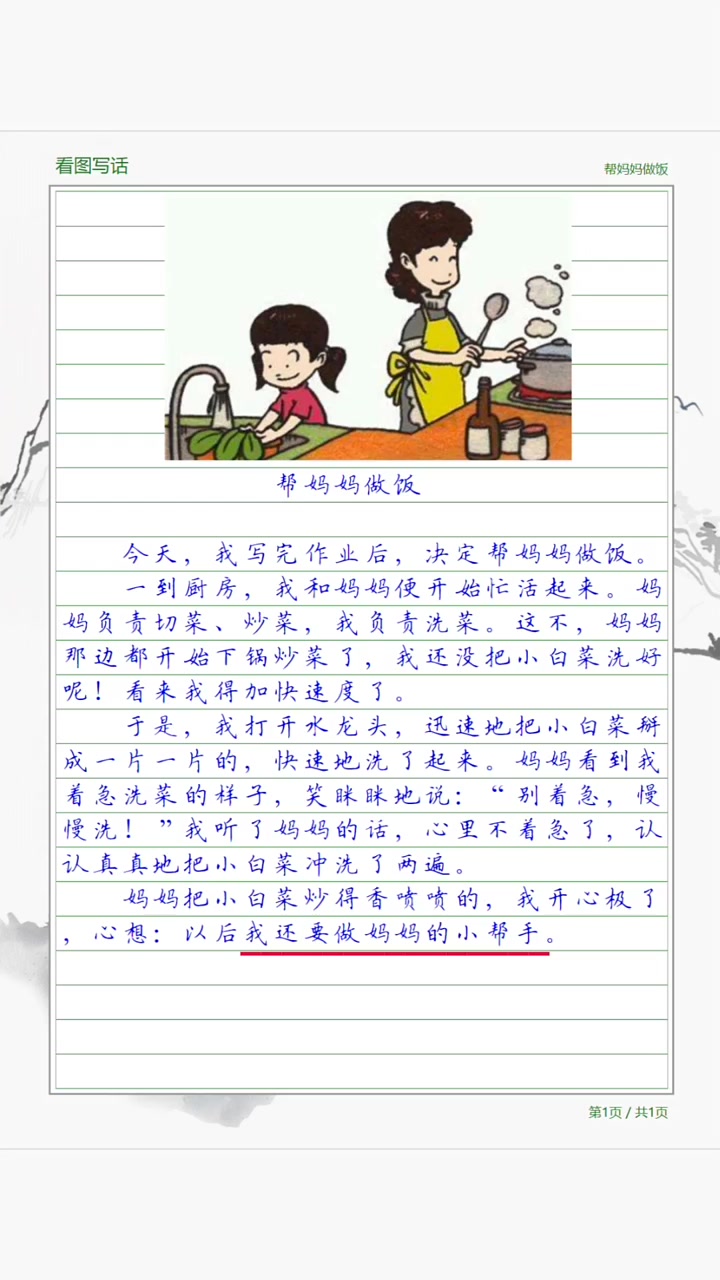 看图写话
帮妈妈做饭
帮妈妈做饭
今天，我写完作业后，决定帮妈妈做饭。
一到厨房，我和妈妈便开始忙活起来。妈
妈负责切菜、炒菜，我负责洗菜。这不，妈妈
那边都开始下锅炒菜了，我还没把小白菜洗好
呢！看来我得加快速度了。
于是，我打开水龙头，迅速地把小白菜掰
成一片一片的，快速地洗了起来。妈妈看到我
着急洗菜的样子，笑眯眯地说：“别着急，慢
慢洗！”我听了妈妈的话，心里不着急了，认
认真真地把小白菜冲洗了两遍。
妈妈把小白菜炒得香喷喷的，我开心极了
，心想：以后我还要做妈妈的小帮手。
第1页 / 共1页